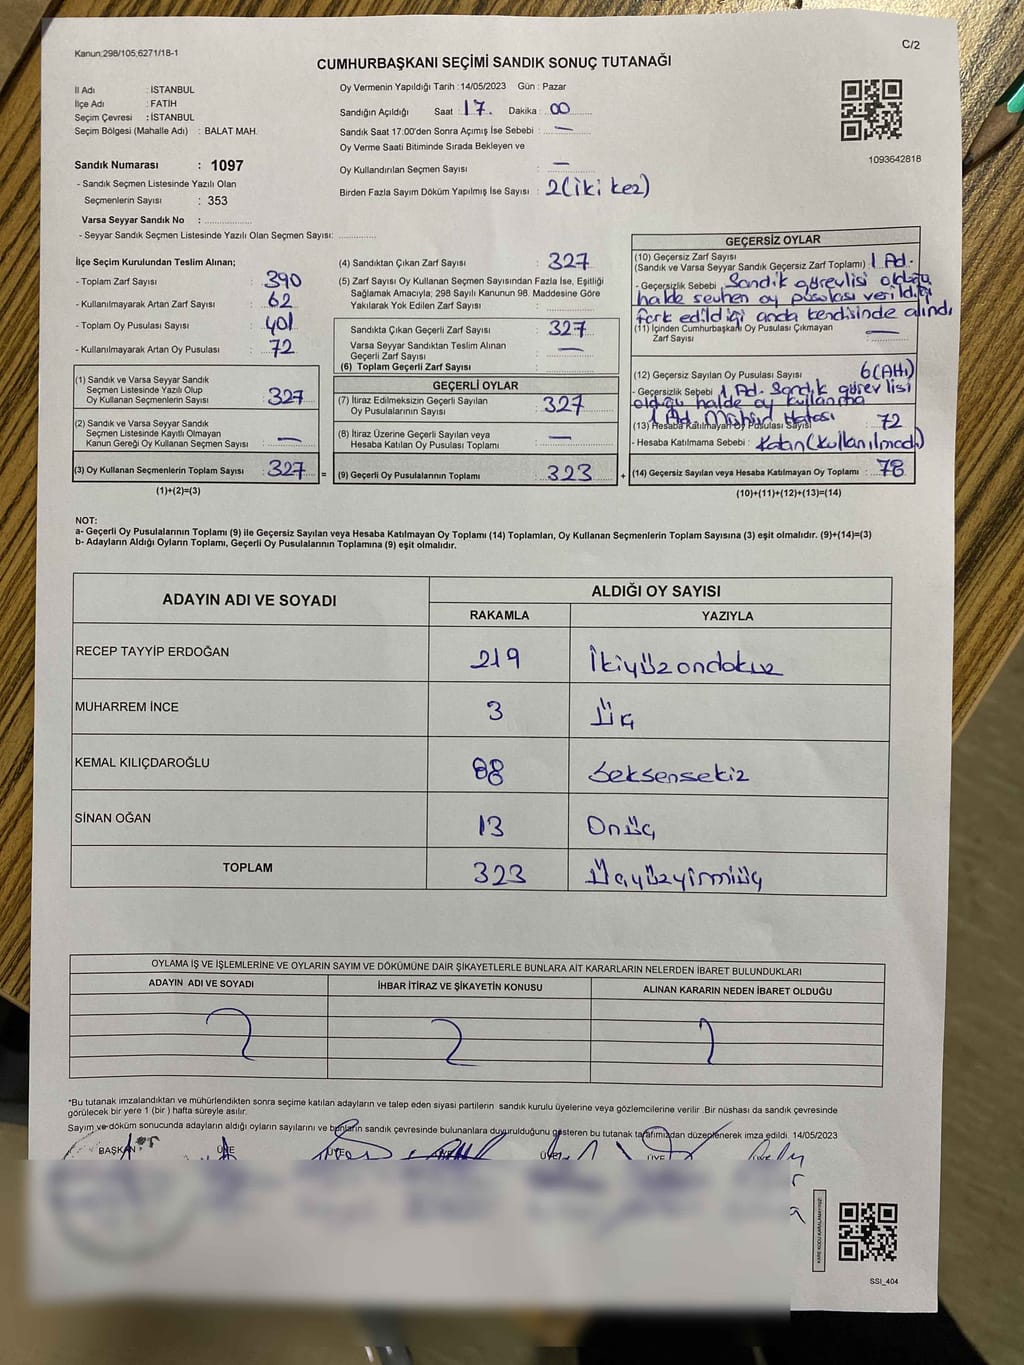 Kanun:298/105;6271/18-1
C/2
CUMHURBAŞKANI SEÇİMİ SANDIK SONUÇ TUTANAĞI
İl Adı : İSTANBUL
İlçe Adı : FATİH
Seçim Çevresi : İSTANBUL
Seçim Bölgesi (Mahalle Adı) : BALAT MAH.
Sandık Numarası : 1097
- Sandık Seçmen Listesinde Yazılı Olan
Seçmenlerin Sayısı : 353
Varsa Seyyar Sandık No :
- Seyyar Sandık Seçmen Listesinde Yazılı Olan Seçmen Sayısı:
Oy Vermenin Yapıldığı Tarih : 14/05/2023 Gün : Pazar
Sandığın Açıldığı Saat : 17. Dakika : 00
Sandık Saat 17:00'den Sonra Açımış İse Sebebi : —
Oy Verme Saati Bitiminde Sırada Bekleyen ve
Oy Kullandırılan Seçmen Sayısı : —
Birden Fazla Sayım Döküm Yapılmış İse Sayısı : 2(iki kez)
1093642818
İlçe Seçim Kurulundan Teslim Alınan;
- Toplam Zarf Sayısı : 390
- Kullanılmayarak Artan Zarf Sayısı : 62
- Toplam Oy Pusulası Sayısı : 401
- Kullanılmayarak Artan Oy Pusulası : 72
(1) Sandık ve Varsa Seyyar Sandık
Seçmen Listesinde Yazılı Olup
Oy Kullanan Seçmenlerin Sayısı : 327
(2) Sandık ve Varsa Seyyar Sandık
Seçmen Listesinde Kayıtlı Olmayan
Kanun Gereği Oy Kullanan Seçmen Sayısı : —
(3) Oy Kullanan Seçmenlerin Toplam Sayısı : 327 =
(1)+(2)=(3)
(4) Sandıktan Çıkan Zarf Sayısı : 327
(5) Zarf Sayısı Oy Kullanan Seçmen Sayısından Fazla İse, Eşitliği
Sağlamak Amacıyla; 298 Sayılı Kanunun 98. Maddesine Göre
Yakılarak Yok Edilen Zarf Sayısı :
Sandıkta Çıkan Geçerli Zarf Sayısı : 327
Varsa Seyyar Sandıktan Teslim Alınan
Geçerli Zarf Sayısı : —
(6) Toplam Geçerli Zarf Sayısı :
GEÇERLİ OYLAR
(7) İtiraz Edilmeksizin Geçerli Sayılan
Oy Pusulalarının Sayısı : 327
(8) İtiraz Üzerine Geçerli Sayılan veya
Hesaba Katılan Oy Pusulası Toplamı : —
(9) Geçerli Oy Pusulalarının Toplamı : 323 +
GEÇERSİZ OYLAR
(10) Geçersiz Zarf Sayısı
(Sandık ve Varsa Seyyar Sandık Geçersiz Zarf Toplamı) : 1 Ad.
- Geçersizlik Sebebi : Sandık görevlisi olduğu
halde sehven oy pusulası verildiği
fark edildiği anda kendisinde alındı
(11) İçinden Cumhurbaşkanı Oy Pusulası Çıkmayan
Zarf Sayısı : —
(12) Geçersiz Sayılan Oy Pusulası Sayısı : 6(Altı)
- Geçersizlik Sebebi 1 Ad. Sandık görevlisi
olduğu halde oy kullanma
1 Ad. Mühür Hatası
(13) Hesaba Katılmayan Oy Pusulası Sayısı : 72
- Hesaba Katılmama Sebebi : Kalan(kullanılmadı)
(14) Geçersiz Sayılan veya Hesaba Katılmayan Oy Toplamı : 78
(10)+(11)+(12)+(13)=(14)
NOT:
a- Geçerli Oy Pusulalarının Toplamı (9) ile Geçersiz Sayılan veya Hesaba Katılmayan Oy Toplamı (14) Toplamları, Oy Kullanan Seçmenlerin Toplam Sayısına (3) eşit olmalıdır. (9)+(14)=(3)
b- Adayların Aldığı Oyların Toplamı, Geçerli Oy Pusulalarının Toplamına (9) eşit olmalıdır.
ADAYIN ADI VE SOYADI ALDIĞI OY SAYISI
RAKAMLA YAZIYLA
RECEP TAYYİP ERDOĞAN 219 İkiyüzondokuz
MUHARREM İNCE 3 Üç
KEMAL KILIÇDAROĞLU 88 Seksensekiz
SİNAN OĞAN 13 Onüç
TOPLAM 323 Üçyüzyirmiüç
OYLAMA İŞ VE İŞLEMLERİNE VE OYLARIN SAYIM VE DÖKÜMÜNE DAİR ŞİKAYETLERLE BUNLARA AİT KARARLARIN NELERDEN İBARET BULUNDUKLARI
ADAYIN ADI VE SOYADI İHBAR İTİRAZ VE ŞİKAYETİN KONUSU ALINAN KARARIN NEDEN İBARET OLDUĞU
*Bu tutanak imzalandıktan ve mühürlendikten sonra seçime katılan adayların ve talep eden siyasi partilerin sandık kurulu üyelerine veya gözlemcilerine verilir .Bir nüshası da sandık çevresinde
görülecek bir yere 1 (bir ) hafta süreyle asılır.
Sayım ve döküm sonucunda adayların aldığı oyların sayılarını ve bunların sandık çevresinde bulunanlara duyurulduğunu gösteren bu tutanak tarafımızdan düzenlenerek imza edildi. 14/05/2023
BAŞKAN ÜYE ÜYE ÜYE ÜYE ÜYE
KARE KODU KARALAMAYINIZ!
SSI_404